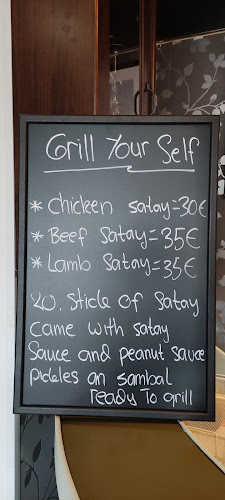 Grill Your Self
* Chicken satay=30€
* Beef Satay=35€
* Lamb Satay=35€
20. Stick of Satay
came with satay
Sauce and peanut sauce
pickles an sambal
ready To grill